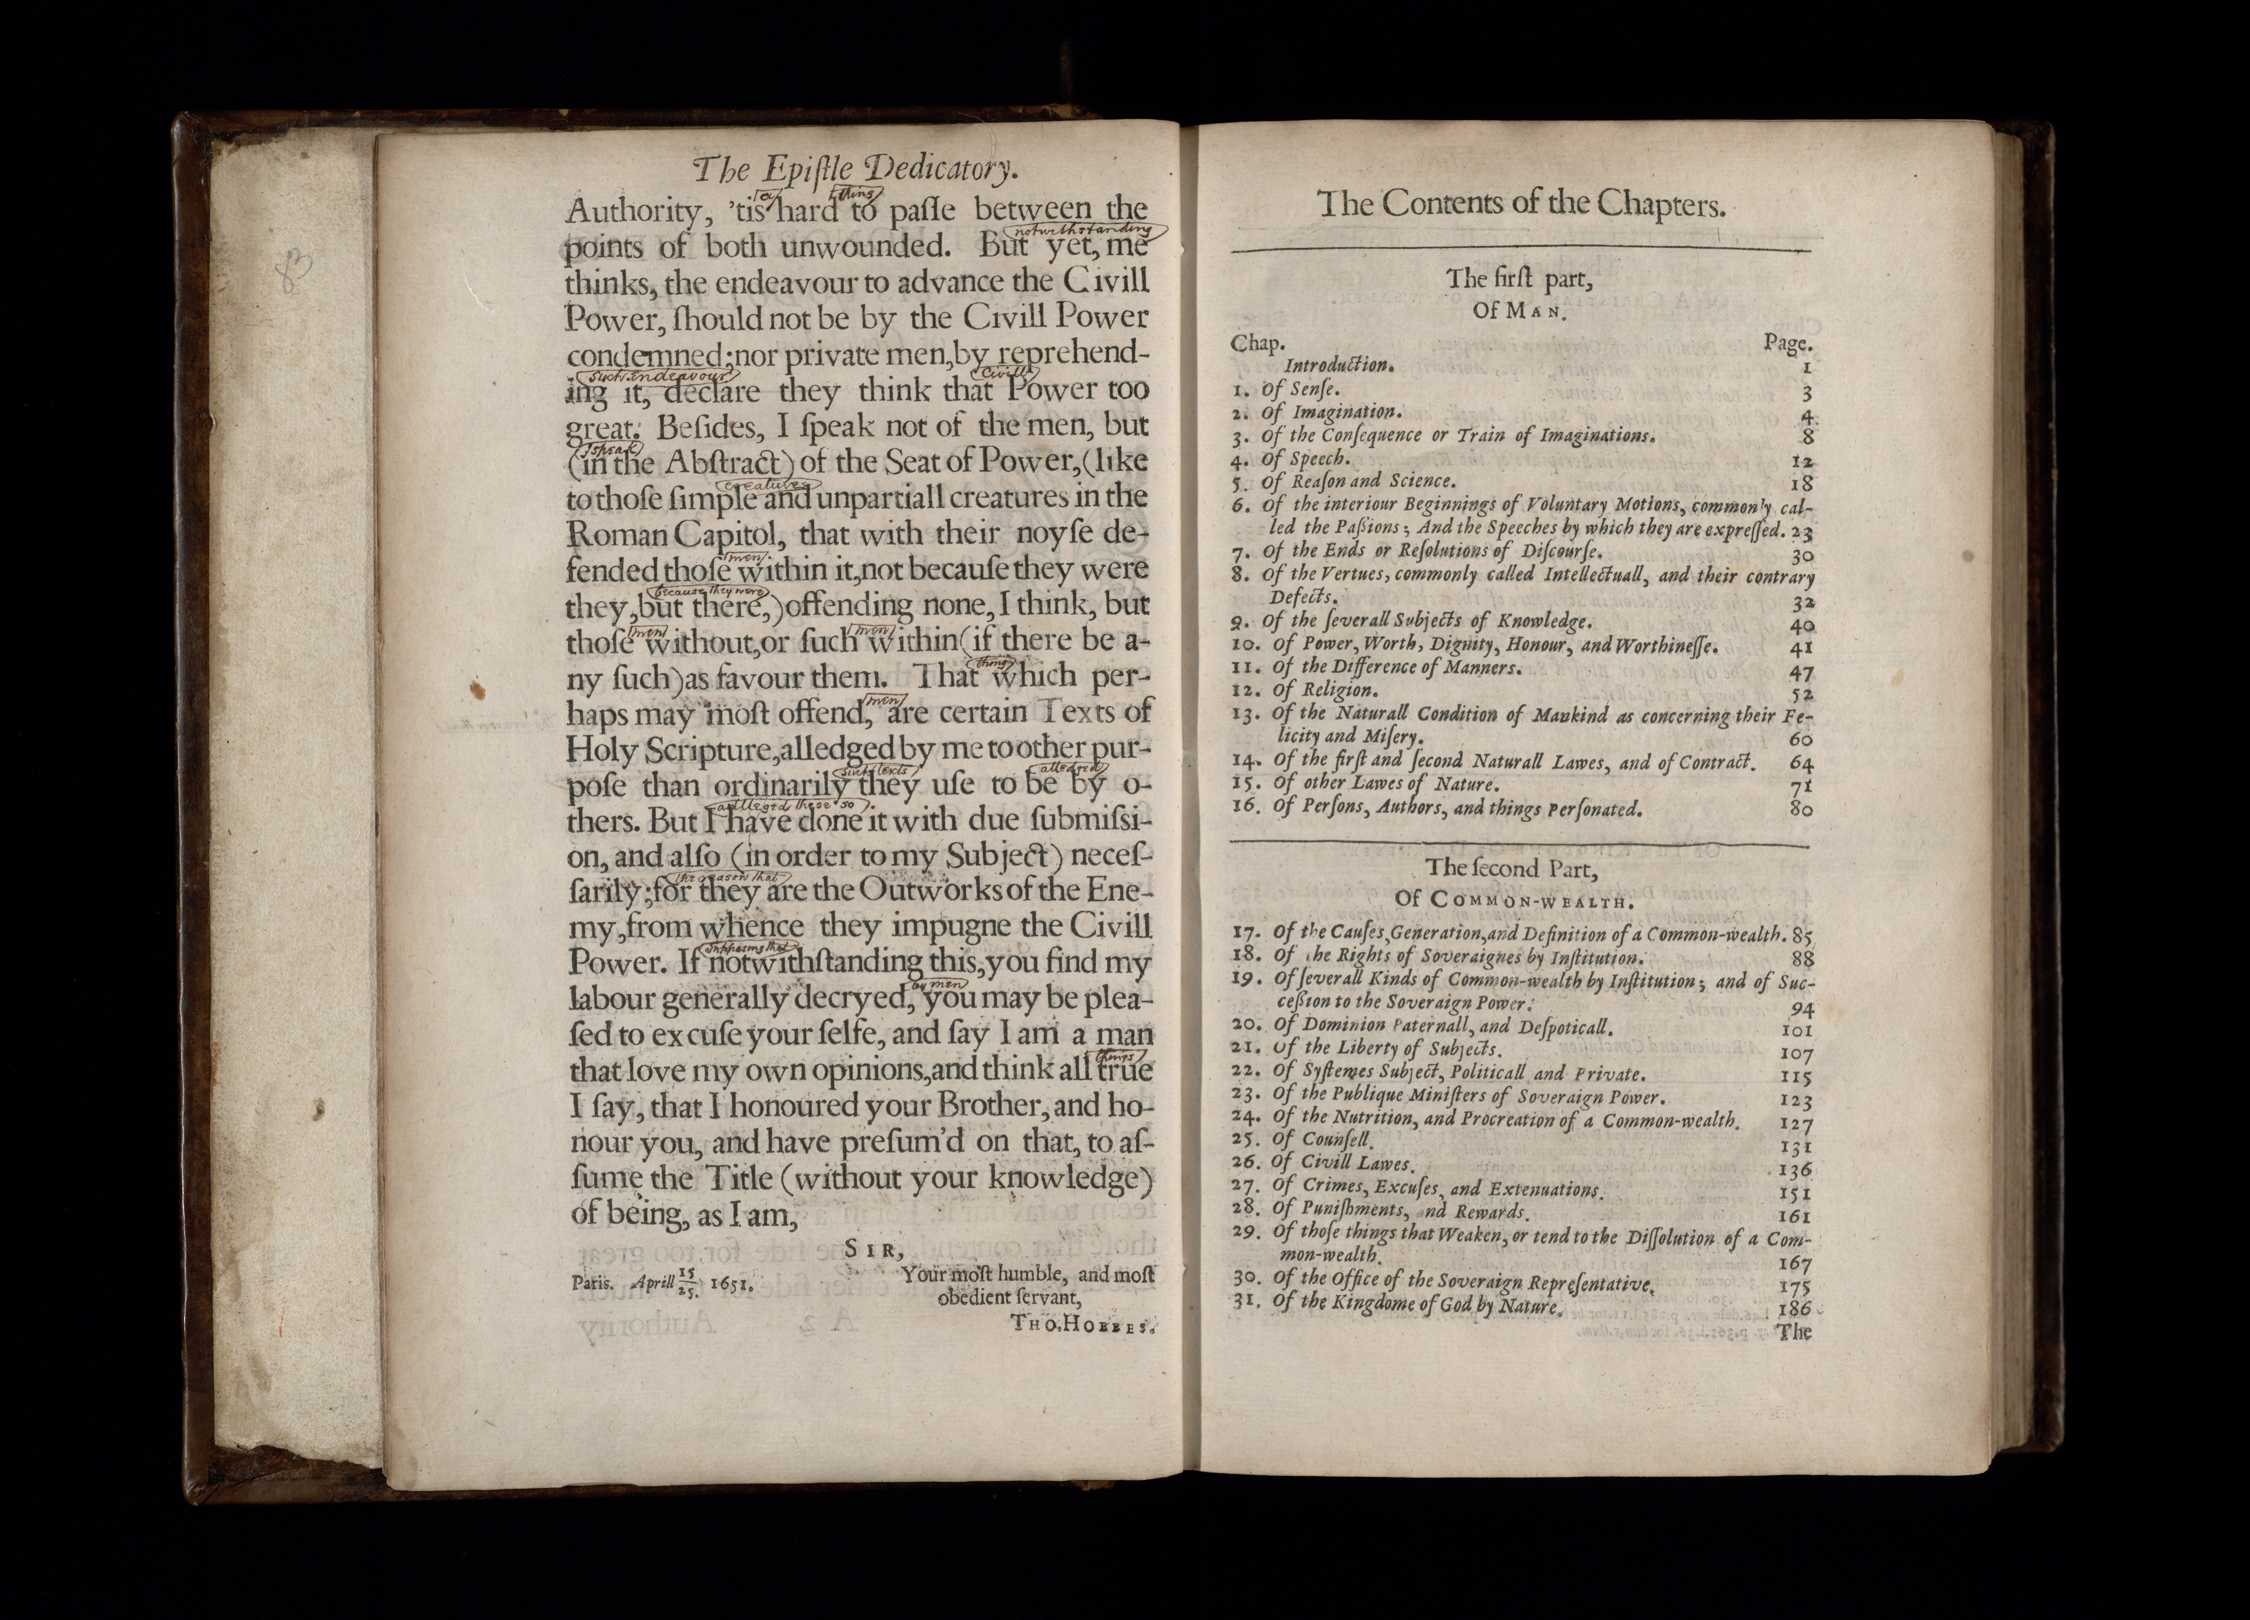 83
The Epiſtle Dedicatory.
a thing
Authority, 'tis hard to paſſe between the
notwithstanding
points of both unwounded. But yet, me
thinks, the endeavour to advance the Civill
Power, ſhould not be by the Civill Power
condemned; nor private men, by reprehend-
such Endeavour Civill
ing it, declare they think that Power too
great. Beſides, I ſpeak not of the men, but
I speak
(in the Abſtract) of the Seat of Power, (like
creatures
to thoſe ſimple and unpartiall creatures in the
Roman Capitol, that with their noyſe de-
men
fended thoſe within it, not becauſe they were
because they were
they, but there,) offending none, I think, but
men men
thoſe without, or ſuch within (if there be a-
thing
ny ſuch) as favour them. That which per-
men
haps may moſt offend, are certain Texts of
Holy Scripture, alledged by me to other pur-
such texts alledged
poſe than ordinarily they uſe to be by o-
alleged these so
thers. But I have done it with due ſubmiſsi-
on, and alſo (in order to my Subject) neceſ-
the reason that
ſarily; for they are the Outworks of the Ene-
my, from whence they impugne the Civill
Supposing that
Power. If notwithſtanding this, you find my
by men
labour generally decryed, you may be plea-
ſed to excuſe your ſelfe, and ſay I am a man
things
that love my own opinions, and think all true
I ſay, that I honoured your Brother, and ho-
nour you, and have preſum'd on that, to aſ-
ſume the Title (without your knowledge)
of being, as I am,
SIR,
Paris. Aprill 15/25. 1651.
Your moſt humble, and moſt
obedient ſervant,
THO. HOBBES.
The Contents of the Chapters.
The firſt part,
Of MAN.
Chap. Page.
Introduction. 1
1. Of Senſe. 3
2. Of Imagination. 4
3. Of the Conſequence or Train of Imaginations. 8
4. Of Speech. 12
5. Of Reaſon and Science. 18
6. Of the interiour Beginnings of Voluntary Motions, commonly cal-
led the Paſsions; And the Speeches by which they are expreſſed. 23
7. Of the Ends or Reſolutions of Diſcourſe. 30
8. Of the Vertues, commonly called Intellectuall, and their contrary
Defects. 32
9. Of the ſeverall Subjects of Knowledge. 40
10. Of Power, Worth, Dignity, Honour, and Worthineſſe. 41
11. Of the Difference of Manners. 47
12. Of Religion. 52
13. Of the Naturall Condition of Mankind as concerning their Fe-
licity and Miſery. 60
14. Of the firſt and ſecond Naturall Lawes, and of Contract. 64
15. Of other Lawes of Nature. 71
16. Of Perſons, Authors, and things Perſonated. 80
The ſecond Part,
Of COMMON-WEALTH.
17. Of the Cauſes, Generation, and Definition of a Common-wealth. 85
18. Of the Rights of Soveraignes by Inſtitution. 88
19. Of ſeverall Kinds of Common-wealth by Inſtitution; and of Suc-
ceſsion to the Soveraign Power. 94
20. Of Dominion Paternall, and Deſpoticall. 101
21. Of the Liberty of Subjects. 107
22. Of Syſtemes Subject, Politicall and Private. 115
23. Of the Publique Miniſters of Soveraign Power. 123
24. Of the Nutrition, and Procreation of a Common-wealth. 127
25. Of Counſell. 131
26. Of Civill Lawes. 136
27. Of Crimes, Excuſes, and Extenuations. 151
28. Of Puniſhments, nd Rewards. 161
29. Of thoſe things that Weaken, or tend to the Diſſolution of a Com-
mon-wealth. 167
30. Of the Office of the Soveraign Repreſentative. 175
31. Of the Kingdome of God by Nature. 186
The